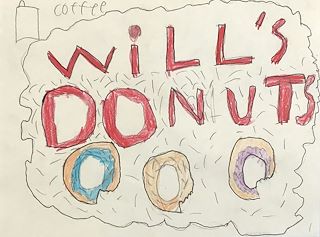 coffee
WiLL'S
DONUT'S